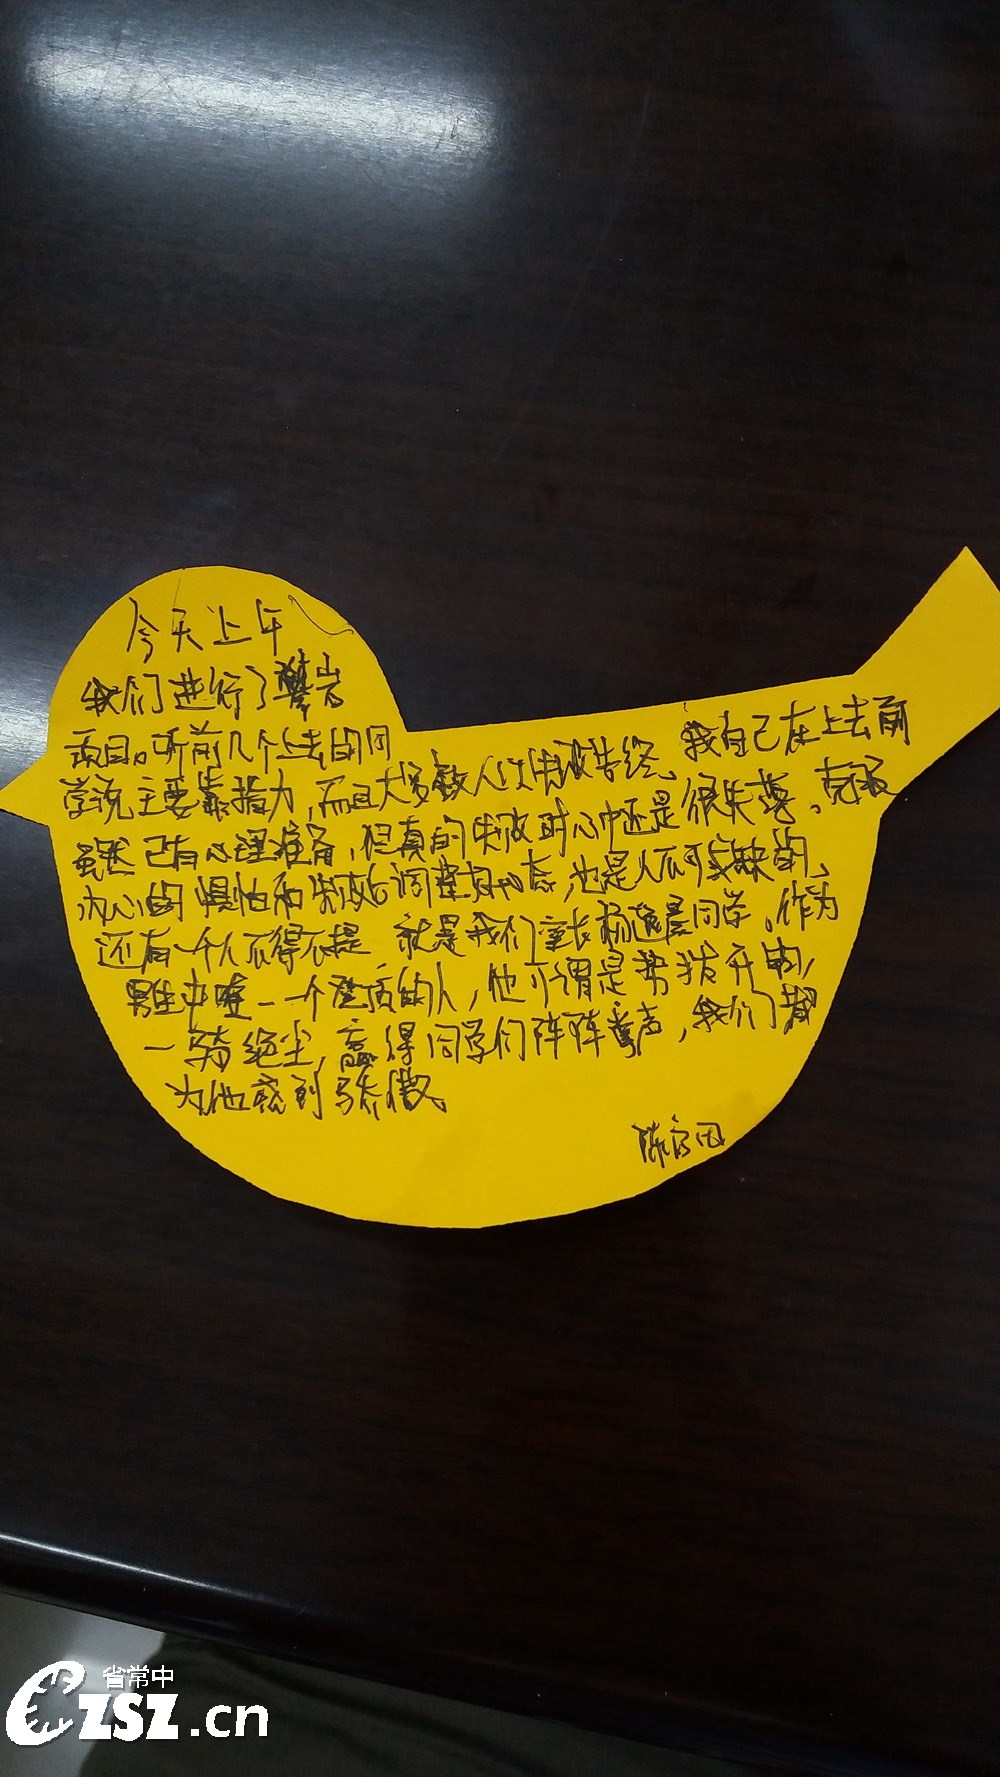 今天上午
我们进行了攀岩
项目。听前几个上去的同
学说主要靠指力,而且大多数人以失败告终。我自己在上去前
虽然已有心理准备,但真的失败时心中还是很失落。克服
内心的惧怕和失败后调整好心态,也是人不可或缺的。
还有一个人不得不提,就是我们室长杨逸晨同学。作为
男生中唯一一个登顶的人,他可谓是势拔开的,
一骑绝尘,赢得同学们阵阵掌声,我们都
为他感到骄傲。
陈
省常中
CZSZ.cn